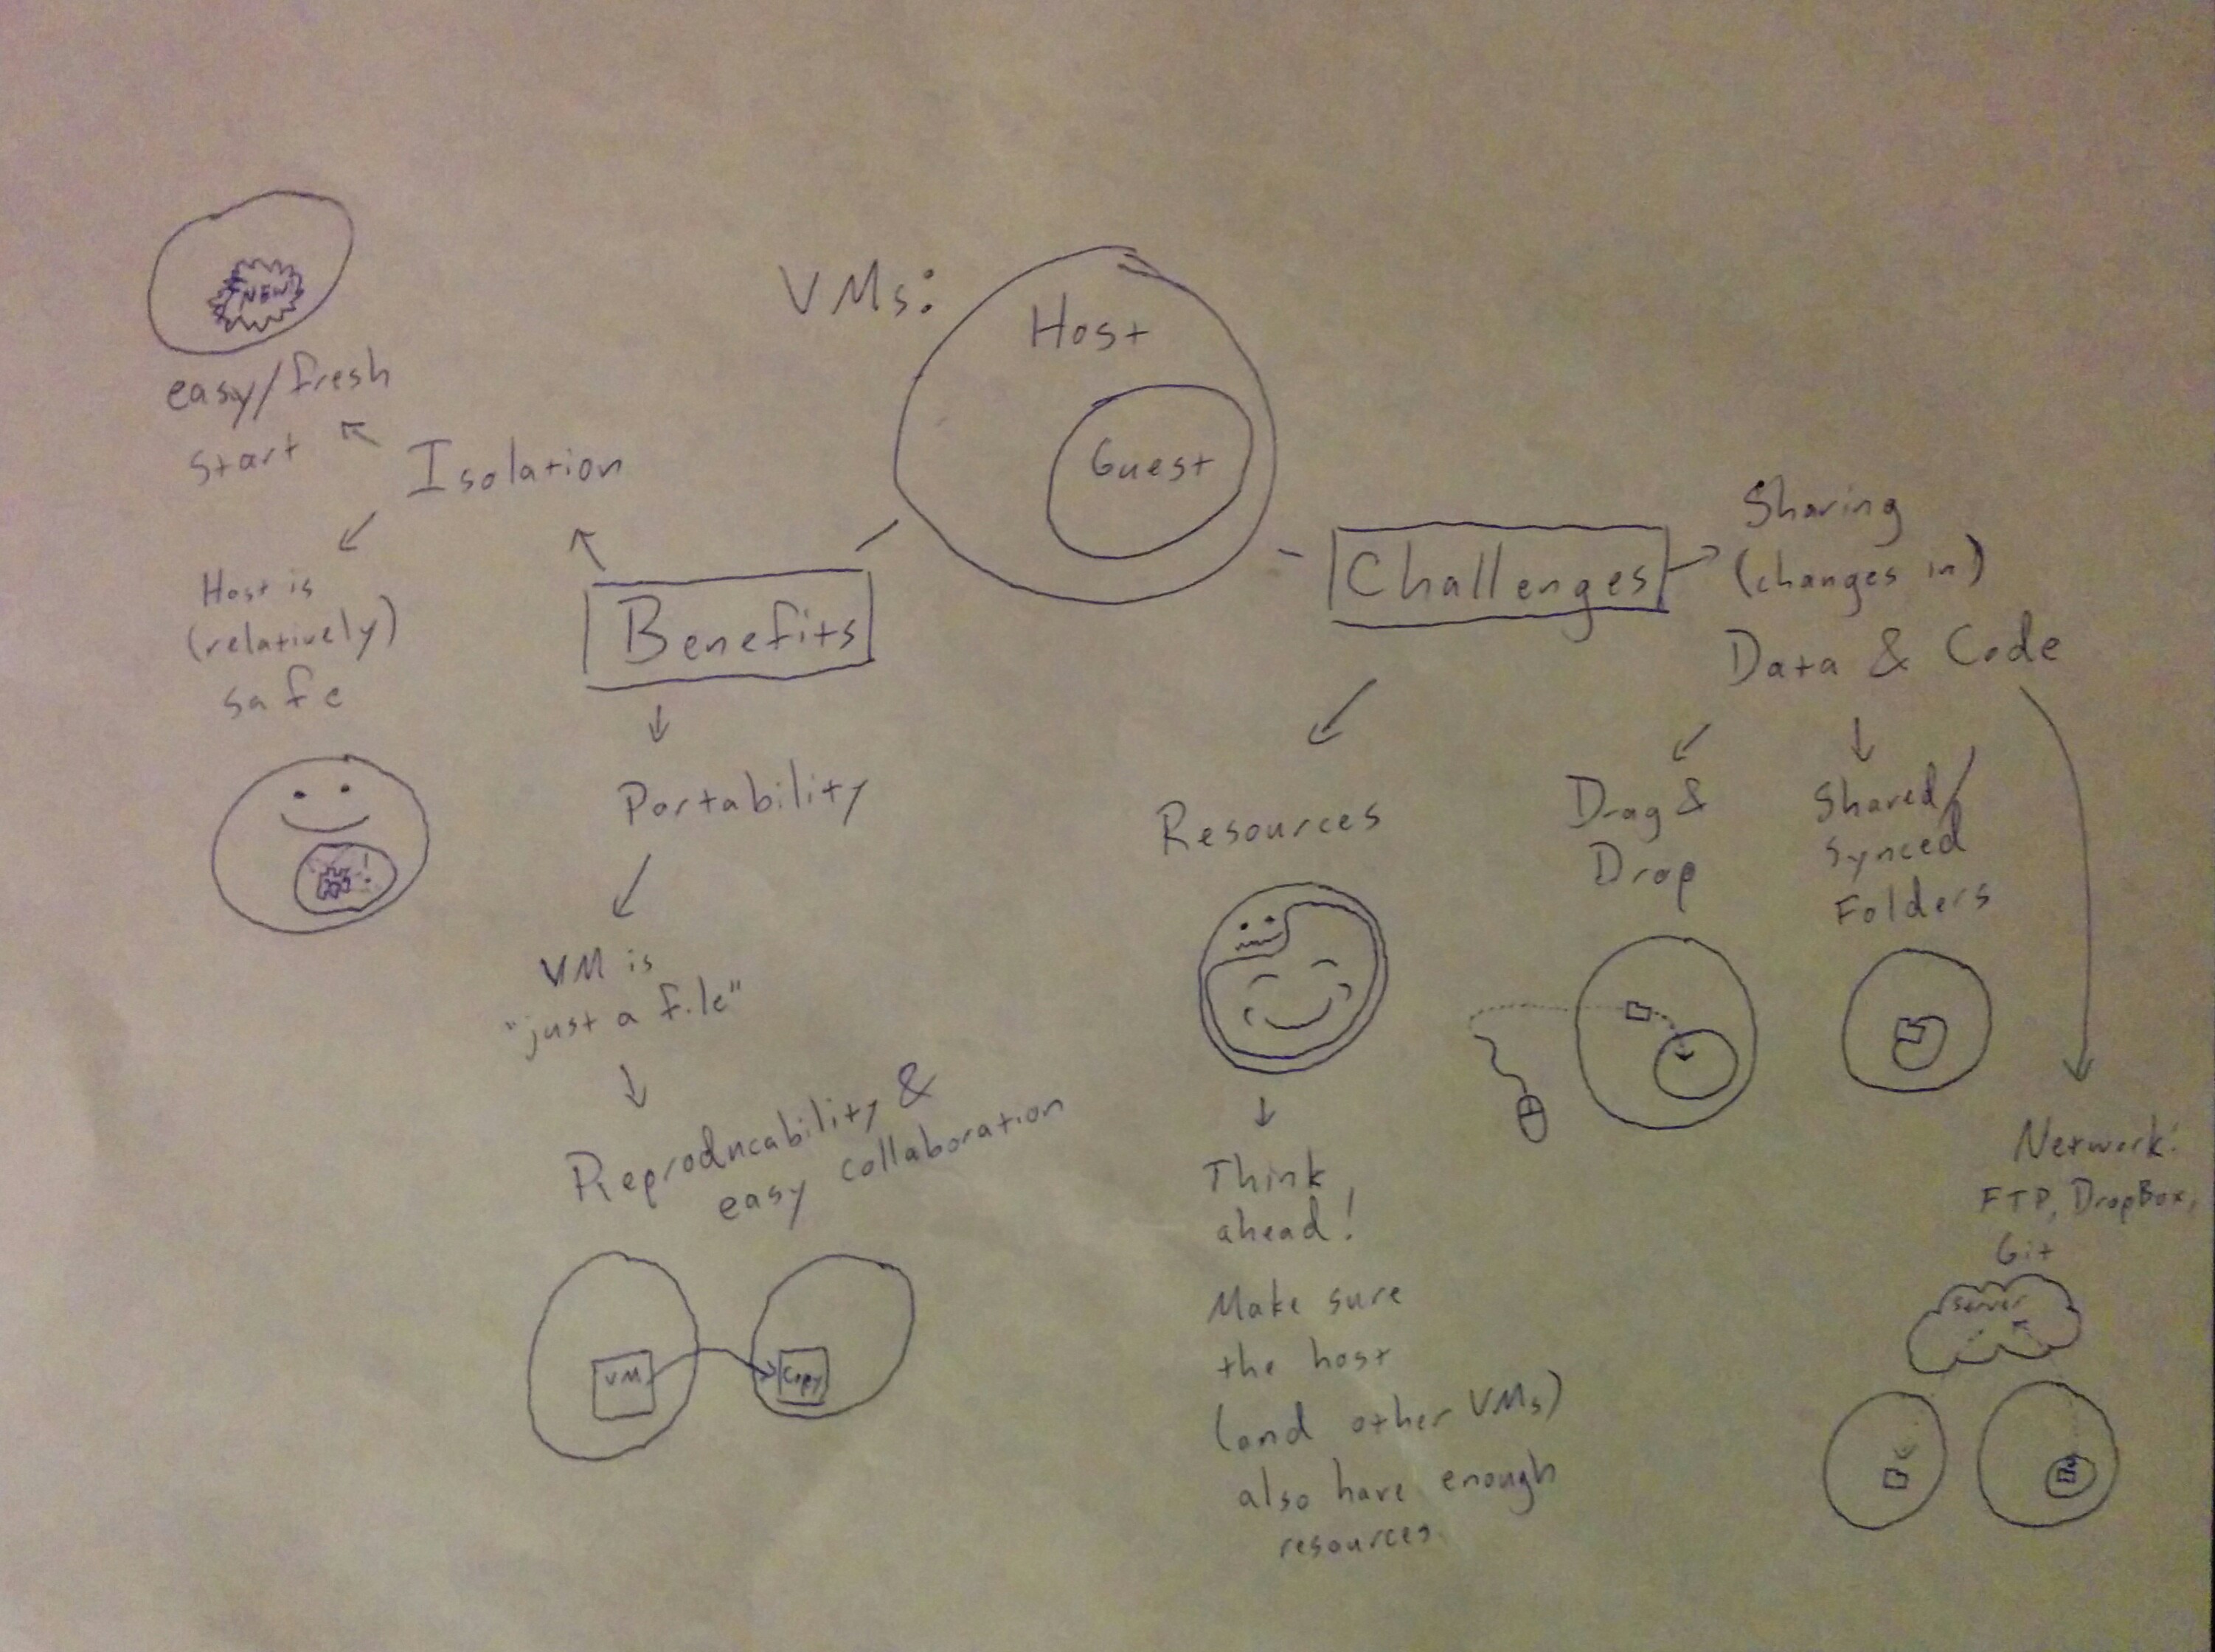 VMs:
Host
Guest
Benefits
Isolation
easy/fresh
start
NEW!
Host is
(relatively)
safe
Portability
VM is
"just a file"
Reproducability &
easy collaboration
VM
Copy
Challenges
Resources
Think
ahead!
Make sure
the host
(and other VMs)
also have enough
resources.
Sharing
(changes in)
Data & Code
Drag &
Drop
Shared/
Synced
Folders
Network:
FTP, DropBox,
Git
server